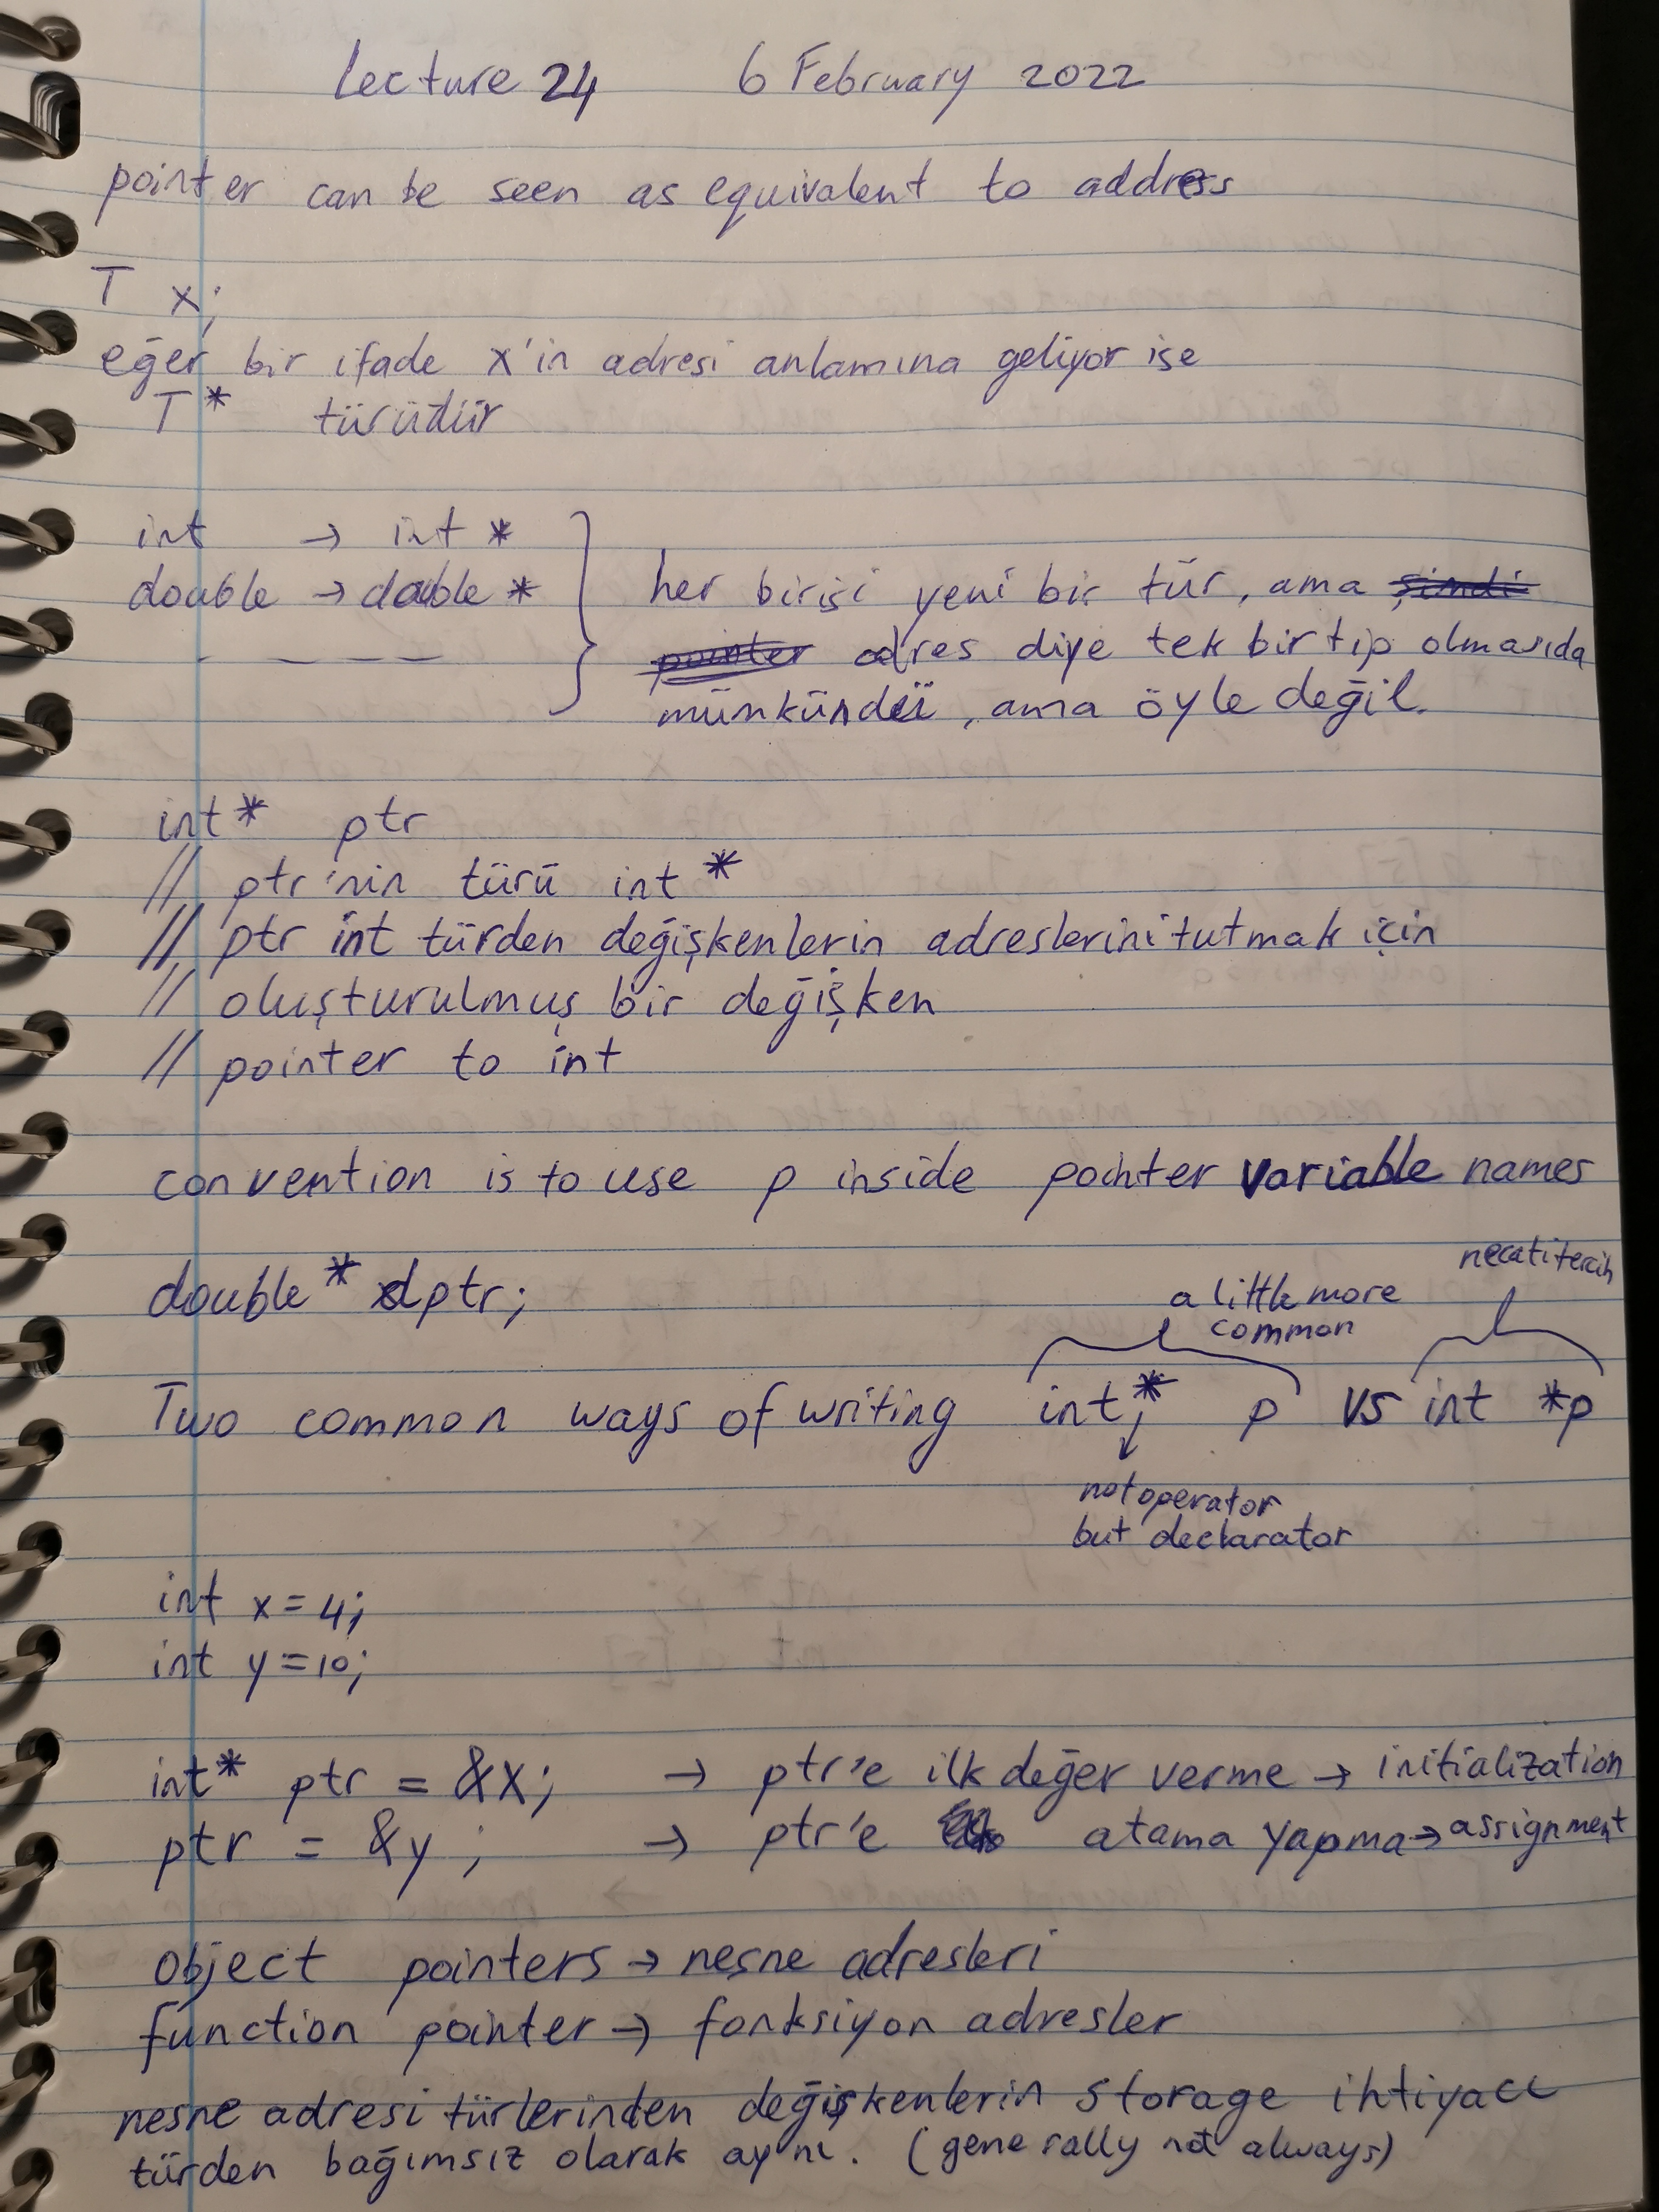 Lecture 24 6 February 2022
pointer can be seen as equivalent to address
T x;
eğer bir ifade x'in adresi anlamına geliyor ise
T* türüdür
int → int *
double → double *
her birisi yeni bir tür, ama şimdi
pointer adres diye tek bir tip olmasıda
münkündü, ama öyle değil.
int* ptr
// ptr'nin türü int *
// ptr int türden değişkenlerin adreslerini tutmak için
// oluşturulmuş bir değişken
// pointer to int
convention is to use p inside pointer variable names
double* dptr;
a little more
common
necati tercih
Two common ways of writing int* p vs int *p
not operator
but declarator
int x = 4;
int y = 10;
int* ptr = &x; → ptr'e ilk değer verme → initialization
ptr = &y; → ptr'e atama yapma → assignment
object pointers → nesne adresleri
function pointer → fonksiyon adresler
nesne adresi türlerinden değişkenlerin storage ihtiyacı
türden bağımsız olarak aynı. (generally not always)